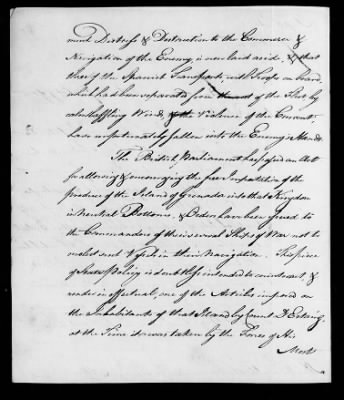 ment Distress & Destruction to the Commerce &
Navigation of the Enemy, is now laid aside, & that
three of the Spanish Transports, with Troops on board,
which had been separated from the rest of the Fleet, by
calm baffling Winds, & the Violence of the Current,
have unfortunately fallen into the Enemy's Hands.
The British Parliament has passed an Act
for allowing & encouraging the free Importation of the
produce of the Island of Grenada into that Kingdom
in Neutral Bottoms, & Orders have been issued to
the Commanders of their several Ships of War not to
molest such Vessels in their Navigation. This piece
of Policy is doubtless intended to counteract, &
render ineffectual, one of the Articles imposed on
the Inhabitants of that Island by Count D'Estaing,
at the Time it was taken by the Forces of His
Most